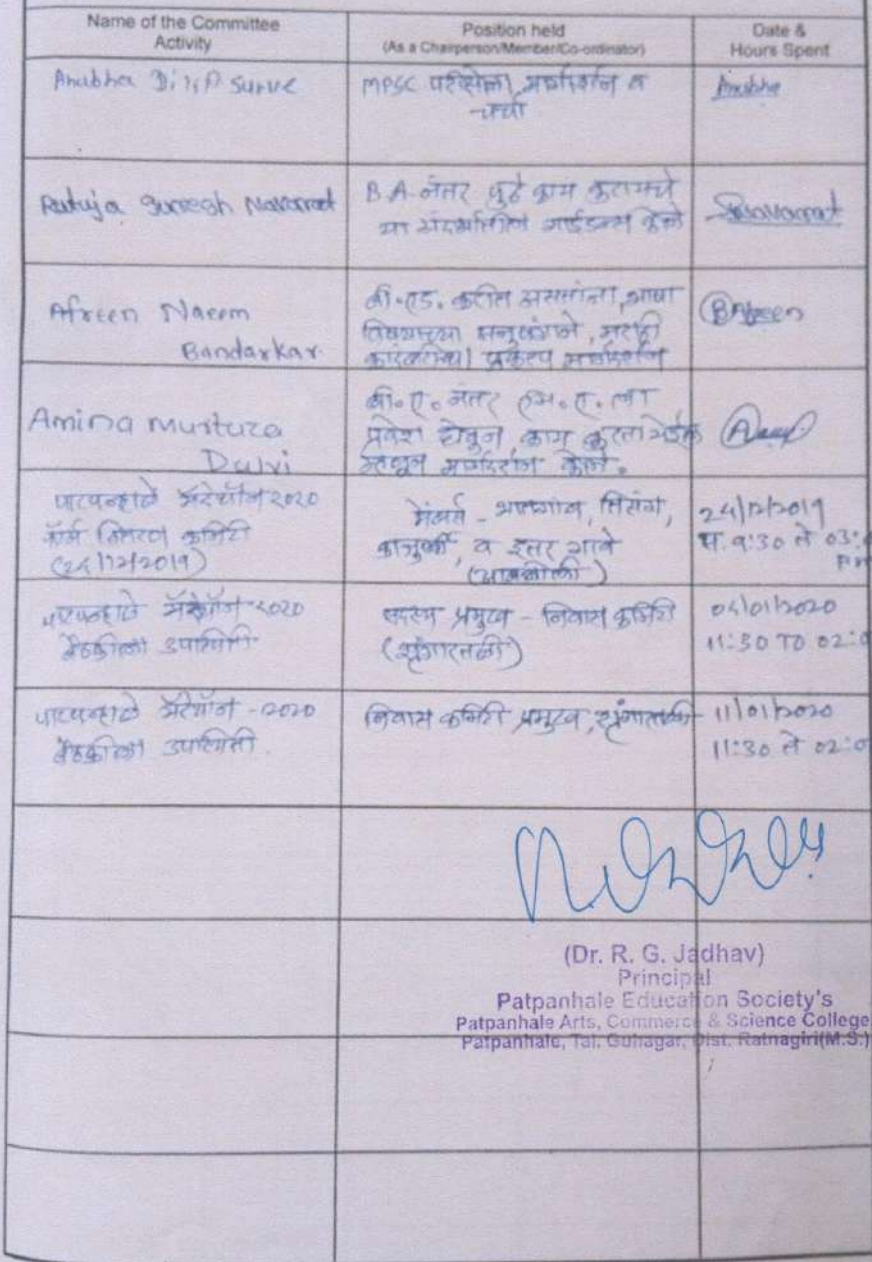 Name of the Committee
Activity
Position held
(As a Chairperson/Member/Co-ordinator)
Date &
Hours Spent
Anubha Dilip Surve
MPSC परीक्षेला मार्गदर्शन व
चर्चा
Anubha
Rutuja Suresh Navarat
B.A. नंतर पुढे काय करायचे
या संदर्भातील गाईडन्स केले
Afreen Naeem
Bandarkar
बी.एड. करीत असताना, भाषा
विषयाच्या अनुषंगाने, मराठी
प्रकल्प मार्गदर्शन
Amina Murtuza
Dalvi
बी.ए. नंतर एम.ए. ला
प्रवेश घेवुन काय करता येईल
म्हणून मार्गदर्शन केले.
पाटपन्हाळे मॅरेथॉन 2020
फॉर्म वितरण कमिटी
(24/12/2019)
मेंबर्स -
व इतर गावे
24/12/2019
स. 9:30 ते 03:
पाटपन्हाळे मॅरेथॉन 2020
बैठकीला उपस्थिती
सदस्य प्रमुख - निवास कमिटी
(शृंगारतळी)
01/2020
11:30 TO 02:0
पाटपन्हाळे मॅरेथॉन - 2020
बैठकीला उपस्थिती.
निवास कमिटी प्रमुख, शृंगारतळी
11/01/2020
11:30 ते 02:0
(Dr. R. G. Jadhav)
Principal
Patpanhale Education Society's
Patpanhale Arts, Commerce & Science College
Patpanhale, Tal. Guhagar, Dist. Ratnagiri(M.S.)